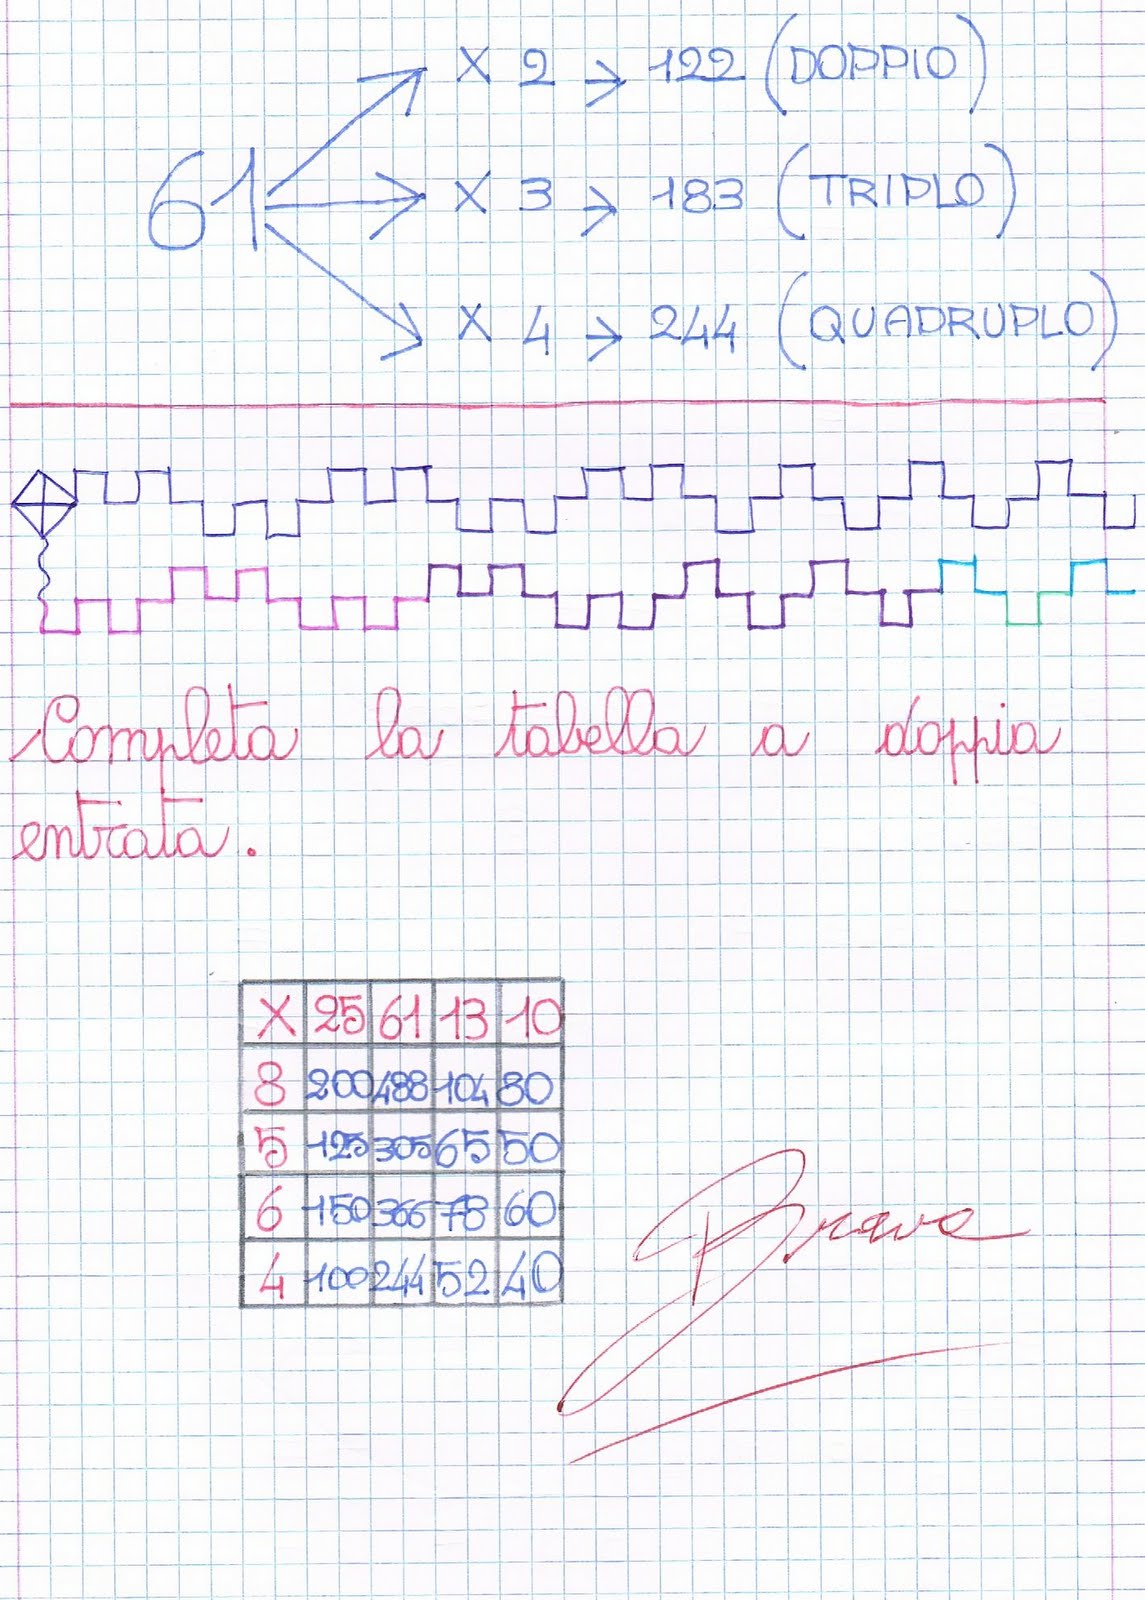 61
x 2 → 122 (DOPPIO)
x 3 → 183 (TRIPLO)
x 4 → 244 (QUADRUPLO)
Completa la tabella a doppia
entrata.
X 25 61 13 10
8 200 488 104 80
5 125 305 65 50
6 150 366 78 60
4 100 244 52 40
Brava